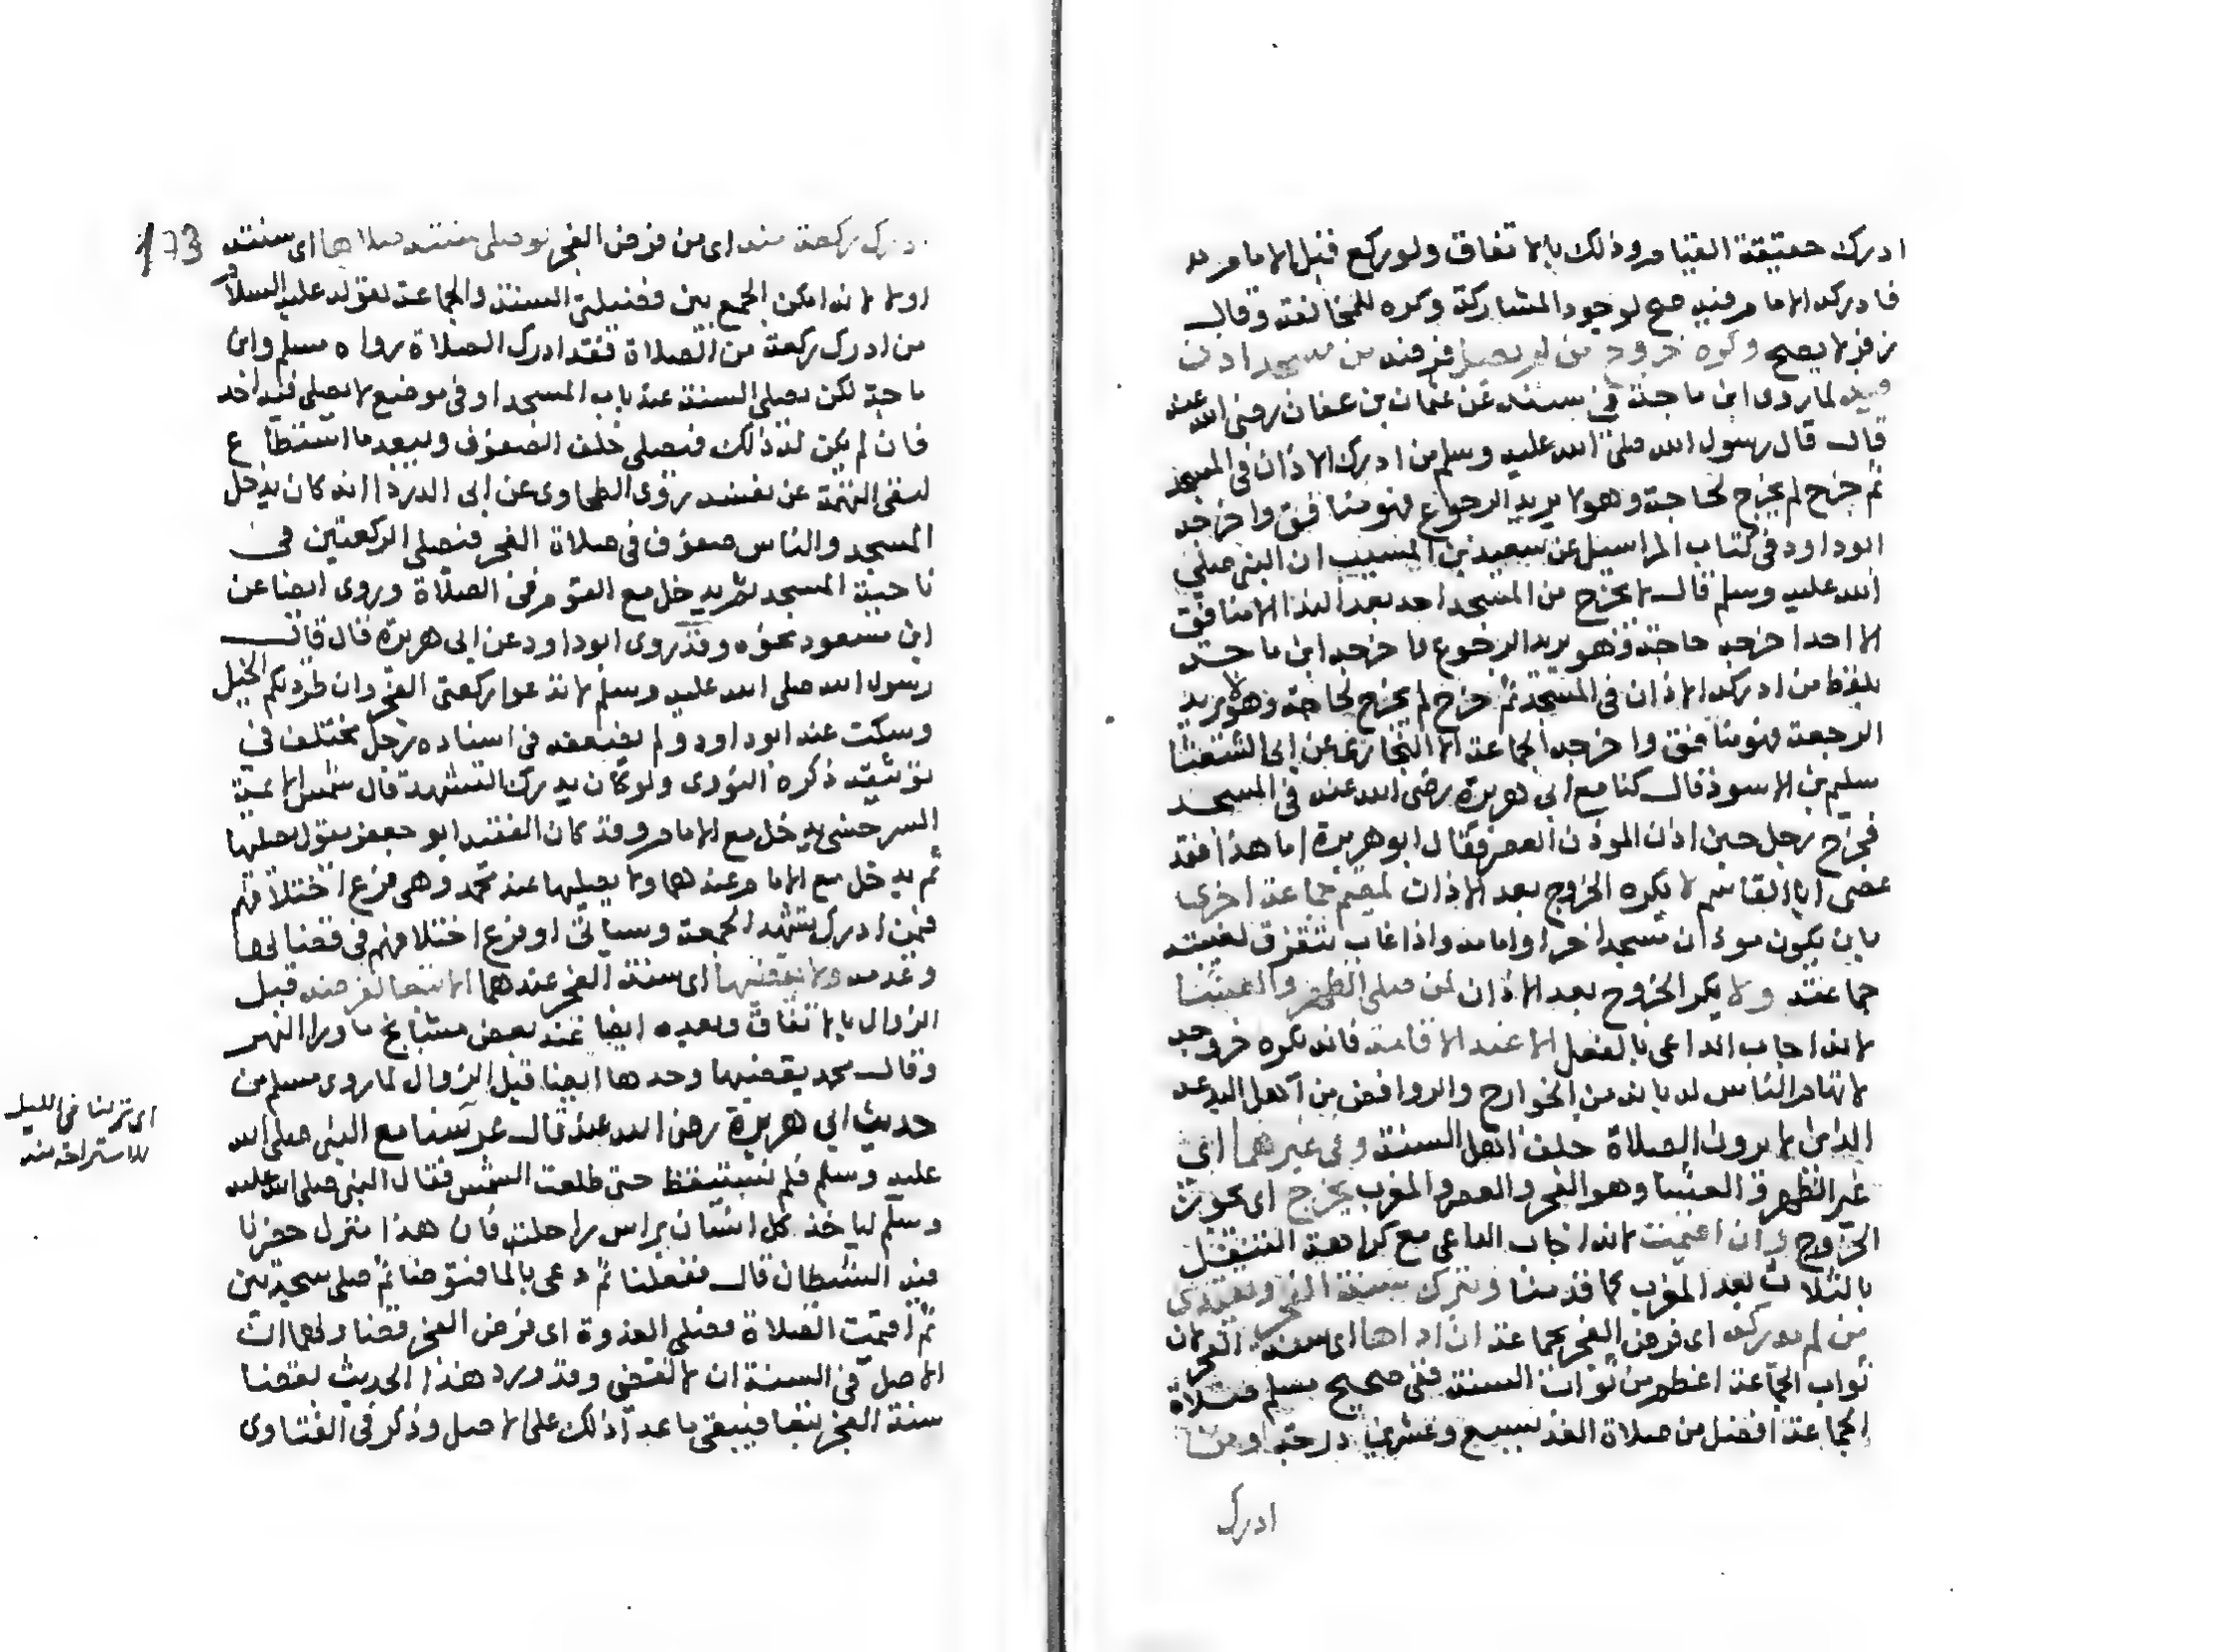 ادرك حقيقة القيام وذلك بالاتفاق ولو ركع قبل الامام به
فادركه الامام فيه صح لوجود المشاركة وكره للمخالفة وقال
زفر لا يصح وكره خروج من لم يصل فرضه من مسجد اذن
فيه لما روى ابن ماجة في سننه عن عثمان بن عفان رضي الله عنه
قال قال رسول الله صلى الله عليه وسلم من ادرك الاذان في المسجد
ثم خرج لم يخرج لحاجة وهو لا يريد الرجوع فهو منافق واخرجه
ابوداود في كتاب المراسيل عن سعيد بن المسيب ان النبي صلى
الله عليه وسلم قال لا يخرج من المسجد احد بعد الندا الا منافق
الا احدا خرجه حاجة وهو يريد الرجوع اخرجه ابن ماجة
بلفظ من ادركه الاذان في المسجد ثم خرج لم يخرج لحاجة وهو لا يريد
الرجعة فهو منافق واخرجه الجماعة الا البخاري عن ابي الشعثا
سليم بن الاسود قال كنا مع ابي هريرة رضي الله عنه في المسجد
فخرج رجل حين اذان الموذن العصر فقال ابو هريرة اما هذا فقد
عصى ابا القاسم لا يكره الخروج بعد الاذان لمقيم جماعة اخرى
بان يكون موذن مسجد اخر او امامه واذا غاب تتفرق لغيبته
جماعته ولا يكره الخروج بعد الاذان لمن صلى الظهر والعشا
لانه اجاب الداعي بالفعل الا عند الاقامة فانه يكره خروجه
لاتهام الناس له بانه من الخوارج والروافض من اهل البدعة
الذين لا يرون الصلاة خلف اهل السنة وفي غيرهما اي
غير الظهر والعشا وهو الفجر والعصر والمغرب يخرج اي يجوز
الخروج وان اقيمت لانه اجاب الداعي مع كراهة التنفل
بالثلاث بعد المغرب كما قدمنا ويترك سنة الفجر ويقتدي
من لم يدركه اي فرض الفجر بجماعة ان اداها اي سنة الفجر لان
ثواب الجماعة اعظم من ثواب السنة ففي صحيح مسلم صلاة
الجماعة افضل من صلاة الفذ بسبع وعشرين درجة ومن
ادرك
173
ادرك ركعة منه اي من فرض الفجر لو صلى سنته صلاها اي سنته
اولا لانه امكن الجمع بين فضيلتي السنة والجماعة لقوله عليه السلام
من ادرك ركعة من الصلاة فقد ادرك الصلاة رواه مسلم وابن
ماجة لكن يصلي السنة عند باب المسجد او في موضع لا يصلي فيه احد
فان لم يكن له ذلك فيصلي خلف الصفوف ويبعد ما استطاع
لينفي التهمة عن نفسه روى الطحاوي عن ابي الدردا انه كان يدخل
المسجد والناس صفوف في صلاة الفجر فيصلي الركعتين في
ناحية المسجد ثم يدخل مع القوم في الصلاة وروى ايضا عن
ابن مسعود نحوه وقد روى ابوداود عن ابي هريرة قال قال
رسول الله صلى الله عليه وسلم لا تدعوا ركعتي الفجر وان طردتكم الخيل
وسكت عنه ابوداود ولم يضعفه في اسناده رجل مختلف في
توثيقه ذكره النووي ولو كان يدرك التشهد قال شمس الائمة
السرخسي يدخل مع الامام وقد كان الفقيه ابو جعفر يقول يصليها
ثم يدخل مع الامام عندهما ولا يصليها عند محمد وهي فرع اختلافهم
فيمن ادرك تشهد الجمعة وسياتي او فرع اختلافهم في قضائها
وعدمه ولا يقضيها اي سنة الفجر عندهما الا تبعا لفرضه قبل
الزوال بالاتفاق وبعده ايضا عند بعض مشايخ ما ورا النهر
وقال محمد يقضيها وحدها ايضا قبل الزوال لما روى مسلم من
حديث ابي هريرة رضي الله عنه قال عرسنا مع النبي صلى الله
عليه وسلم فلم نستيقظ حتى طلعت الشمس فقال النبي صلى الله عليه
وسلم لياخذ كل انسان براس راحلته فان هذا منزل حضرنا
فيه الشيطان قال ففعلنا ثم دعى بالما فتوضا ثم صلى سجدتين
ثم اقيمت الصلاة فصلى الغدوة اي فرض الفجر قضا ولهما ان
الاصل في السنة ان لا تقضي وقد ورد هذا الحديث بقضا
سنة الفجر تبعا فيبقى ما عدا ذلك على الاصل وذكر في الفتاوى
اي نزلنا في الليل
للاستراحة منه